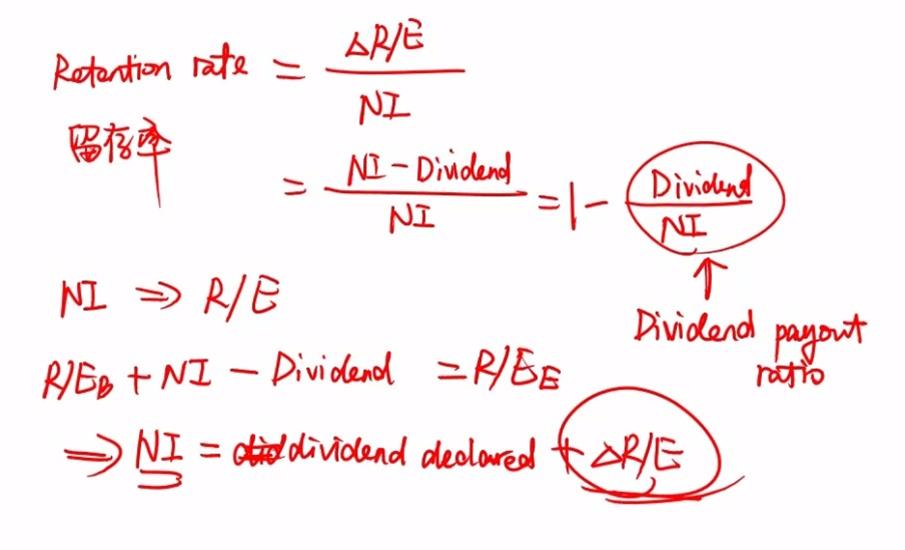 Retention rate = ΔR/E / NI
留存率
= NI - Dividend / NI = 1 - Dividend / NI
Dividend payout ratio
NI ⇒ R/E
R/E_B + NI - Dividend = R/E_E
⇒ NI = dividend declared + ΔR/E